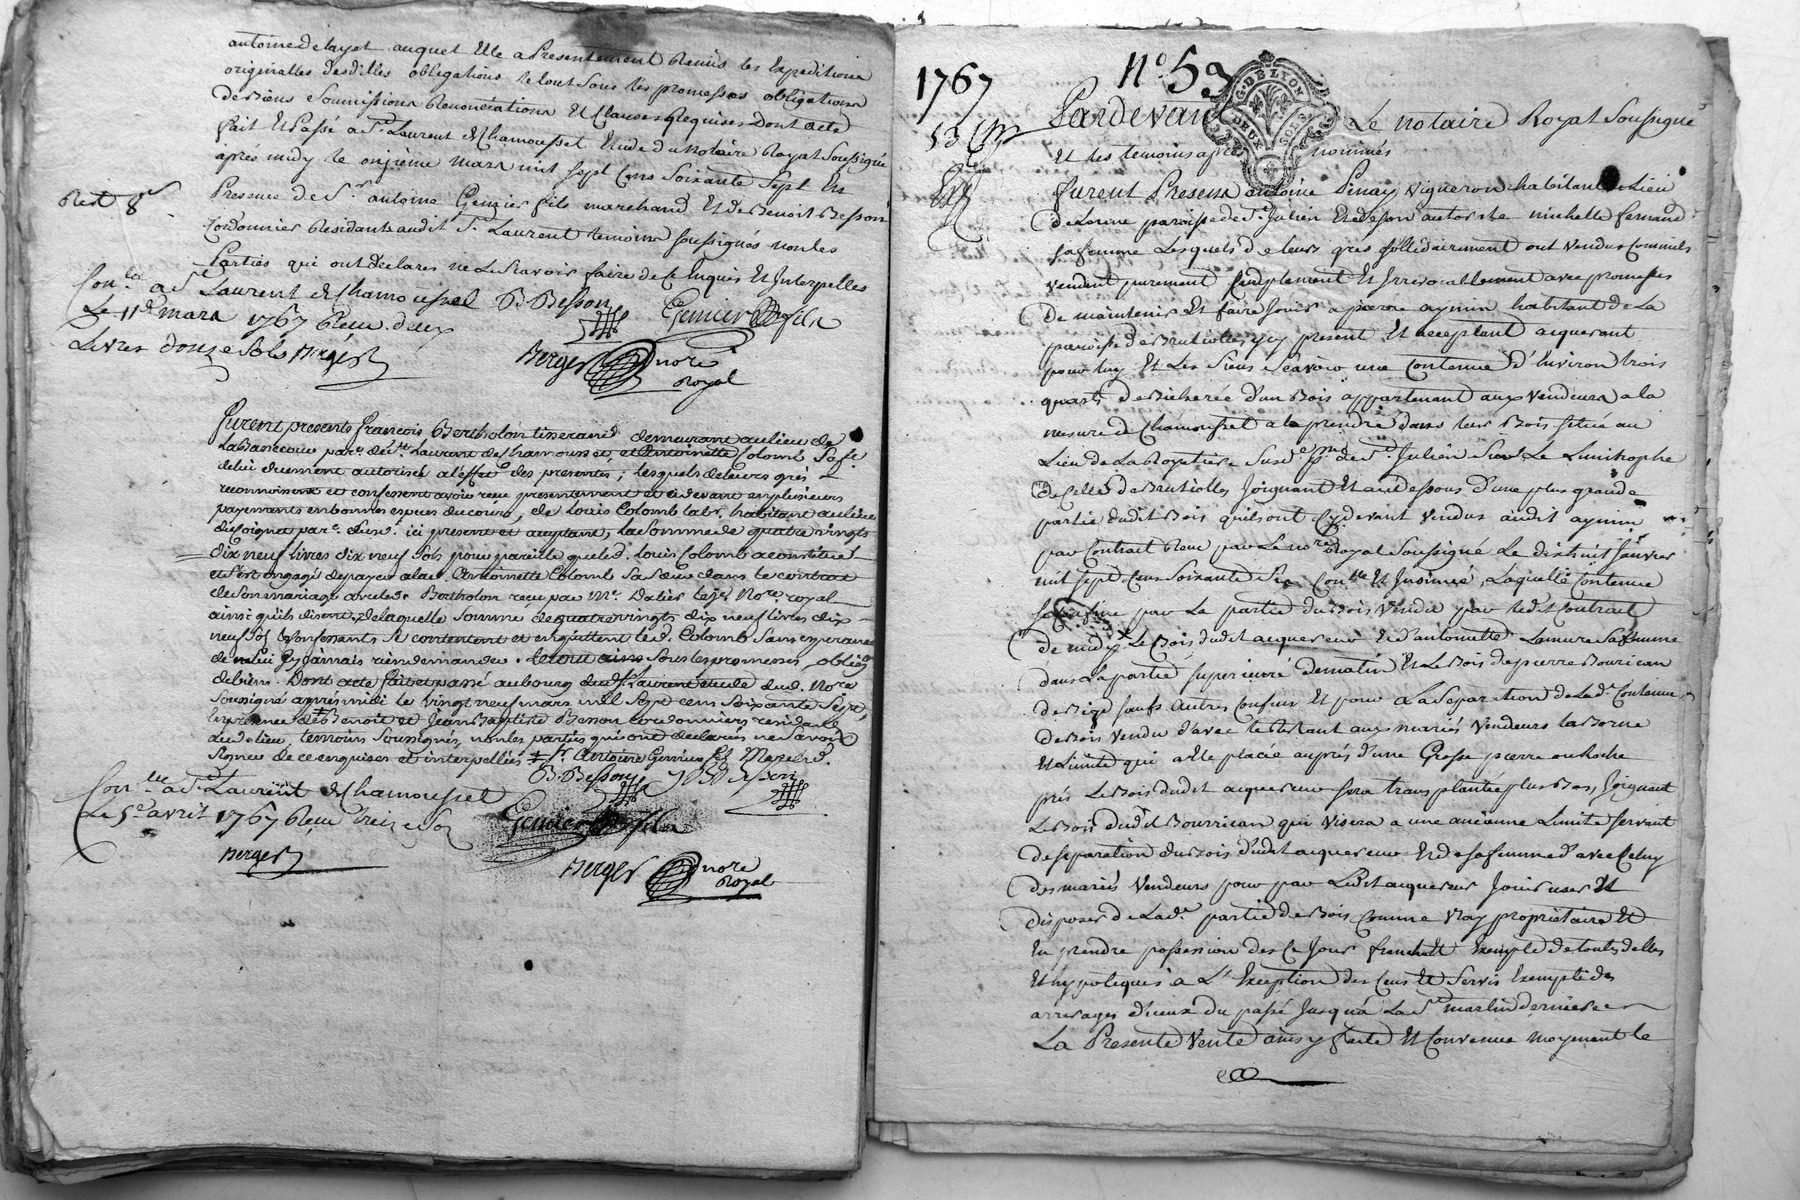 antoine delayet auquel Elle a Presentement Remis les Expeditions
originalles desdittes obligations le tout Sous les promesses obligations
de Biens Soumissions Renonciations Et Clauses Requises Dont acte
fait Et Passé a St. Laurent de Chamousset Etude du Notaire Royal Soussigné
après midy le onzieme mars mil sept Cens Soixante Sept En
Presence de Sr. antoine Genier fils marchand Et de Benoit Besson
Cordonnier Residants audit St. Laurent temoins soussignés non les
Parties qui ont declarés ne Le Scavoir faire de Ce Enquis Et Interpelles
Con.lé a St Laurent de Chamousset
Le 11e mars 1767 Reçu deux
Livres douze Sols Berger
B. Besson
Genier fils
Berger nore
Royal
furent presents francois Bertholon tisserand demeurant au lieu de
par.e de St. Laurent de chamousset, et Antoinette Colomb Sa fe.
de lui duement autorisée a l'effet des presentes; lesquels de leurs grés
reconnoissent et confessent avoir reçu presentement et cidevant en plusieurs
payements en bonnes especes du cours, de Louis Colomb labr. habitant au lieu
par.e dud. ici present et acceptant, la Somme de quatre vingts
dix neuf livres dix neuf sols pour pareille que led. Louis Colomb a constitué
et s'est engagé de payer a lad. Antoinette Colomb Sa Sœur dans le contrat
de Son mariage avec led. Bertholon reçu par Me. Dalier le je. Nore. royal
ainsi qu'ils disent, de laquelle Somme de quatre vingts dix neuf livres dix
neuf sols les confessants se contentent et en quittent led. Colomb Sans esperance
de ne lui en jamais rien demander. le tout ainsi Sous les promesses, oblig.
de biens. Dont acte fait et passé au bourg dud. St. Laurent etude dud. Nore
Soussigné après midi le vingt neuf mars mil Sept cens soixante Sept,
en presence de Benoit et Jean Baptiste Besson Cordonniers residants
aud. lieu, temoins Soussignés, non les parties qui ont declarés ne Savoir
signer de ce enquises et interpellées Sr. Antoine Genier fils March.d
Con.lé a St Laurent de Chamousset
Le 5e. avril 1767 Reçu treize sols
Berger
B. Besson
Genier fils
Berger nore
Royal
1767
N° 59
G. DE LYON
DEUX SOLS
Pardevant Le notaire Royal Soussigné
Et les temoins après nommés
furent Presens antoine Pinay Vigneron habitant Lieu
paroisse de St. Julien Et de son autorité michelle fernand
sa femme Lesquels de leurs grés sollidairement ont Vendus Comme ils
Vendent purement Simplement Et Irrevocablement avec promesses
De maintenir Et faire Jouir a pierre aymin habitant de La
paroisse de Brutiolles, icy present Et acceptant acquerant
pour luy Et Les Siens Scavoir une Contenue D'Environ trois
quarts de Bicherée d'un Bois appartenant aux Vendeurs a la
mesure de Chamousset a la prendre dans leur Bois situé au
Lieu de La Susd.e pse. de St. Julien Sur Le Limitrophe
De Celle de Brutiolles Joignant Et au dessous d'une plus grande
partie dudit Bois qu'ils ont Cy devant Vendus audit aymin
par Contrait Reçu par Le nore. Royal Soussigné Le dixhuit Janvier
mil sept Cens Soixante Six Con.llé Et Insinué, Laquelle Contenue
se Confine par La partie du Bois Vendu par ledit Contrait
de midy, Le Bois dudit acquereur Et d'antoinette Lamure Sa femme
dans La partie superieure de matin Et Le Bois de pierre Bourrican
de Bize saufs autres Confins Et pour a La Separation de Lad.e Contenue
de Bois Vendu d'avec le Restant aux mariés Vendeurs la Borne
Et Limite qui a Eté placée auprès d'une Grosse pierre ou Roche
près Le Bois dudit acquereur sera transplantée plus Bas, Joignant
Le Bois dudit Bourrican qui Visera a une ancienne Limite servant
de separation du Bois dudit acquereur Et de sa femme d'avec Celuy
des mariés Vendeurs pour par Ledit acquereur Jouir user Et
disposer de Lad.e partie de Bois Comme Vray proprietaire Et
En prendre possession des Ce Jour franche Et Exempte de toutes dettes
Et hypoteques a L'Exception des Cens Et Servis Exempte des
arrerages d'iceux du passé Jusqu'a La St martin derniere
La Presente Vente ainsy faite Et Convenue moyenant le